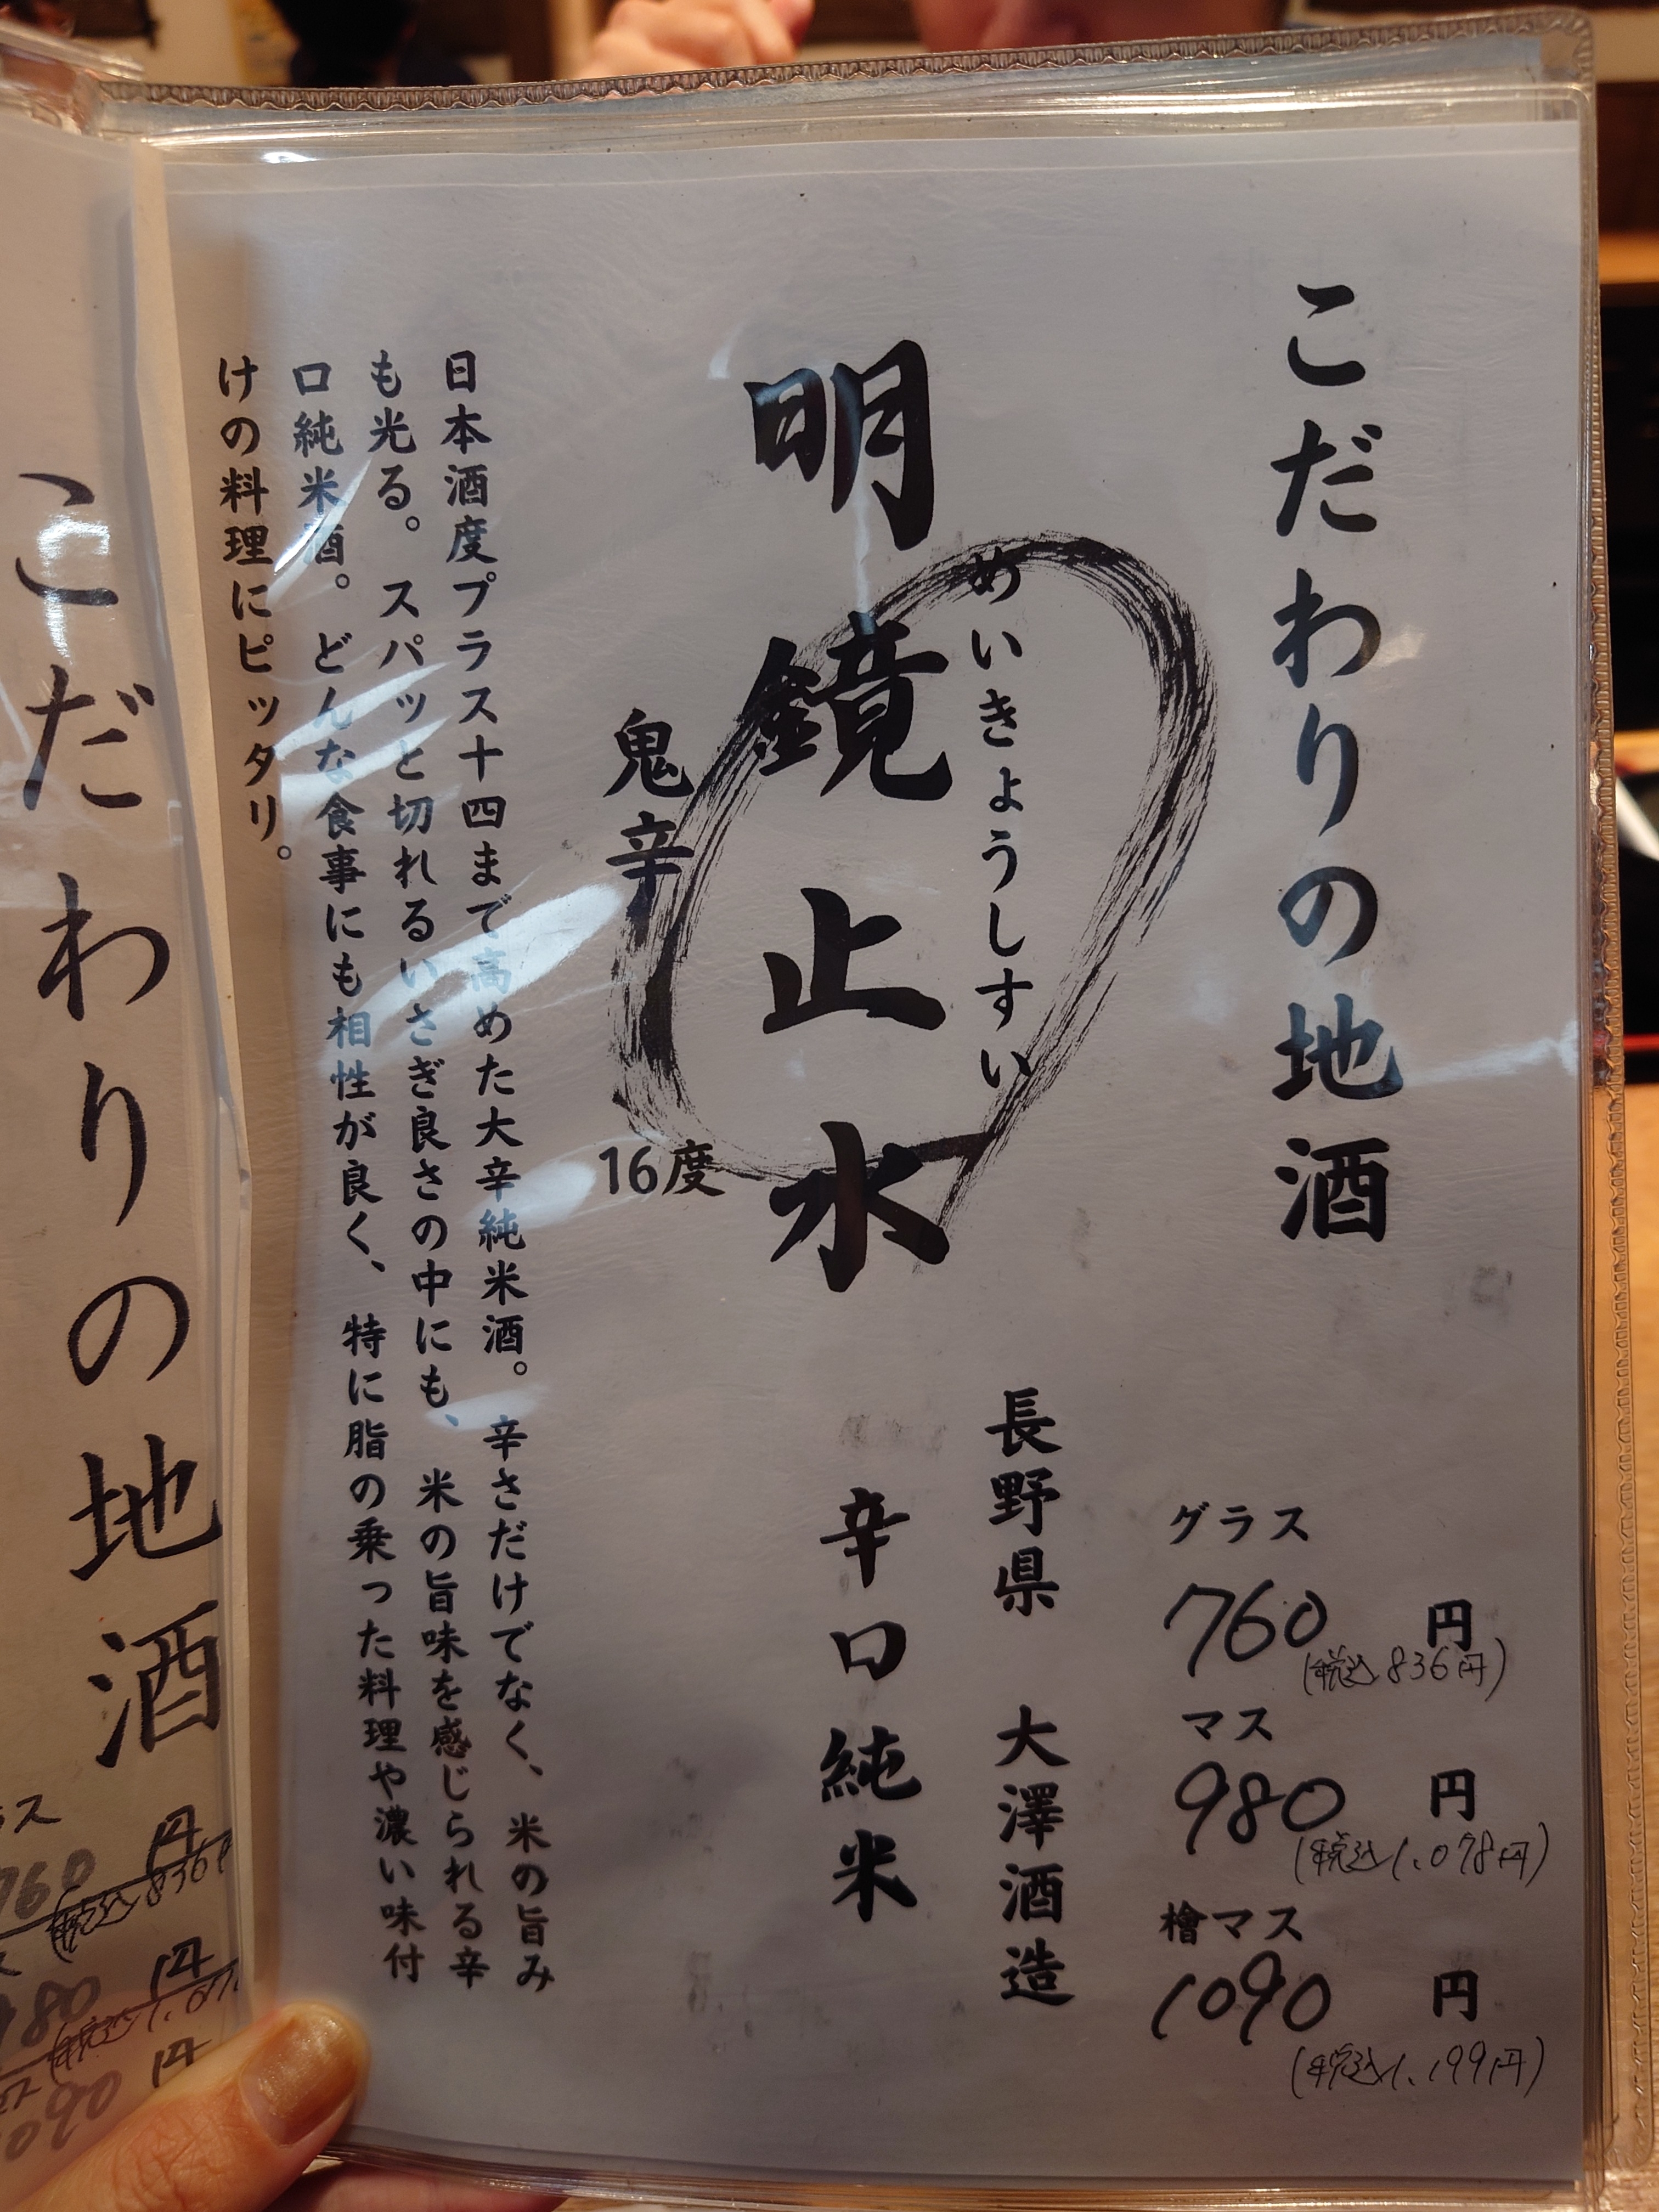 こだわりの地酒
グラス
760円
(税込836円)
マス
980円
(税込1,078円)
檜マス
1090円
(税込1,199円)
めいきょうしすい
長野県 大澤酒造
明鏡止水 辛口純米
鬼辛 16度
日本酒度プラス十四まで高めた大辛純米酒。辛さだけでなく、米の旨み
も光る。スパッと切れるいさぎ良さの中にも、米の旨味を感じられる辛
口純米酒。どんな食事にも相性が良く、特に脂の乗った料理や濃い味付
けの料理にピッタリ。
こだわりの地酒
ス
760円
(税込836円
980円
(税込1,07
090円